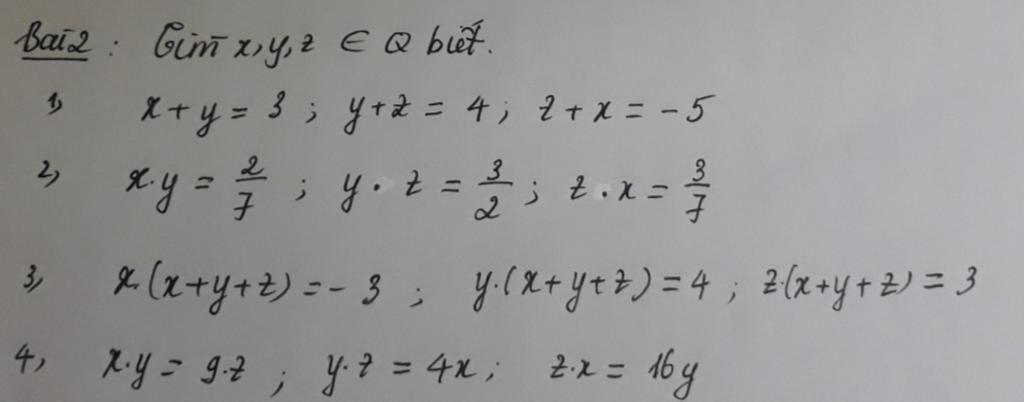 Bài 2 : Tìm x, y, z ∈ Q biết.
1, x + y = 3 ; y + z = 4 ; z + x = - 5
2, x.y = 2/7 ; y . z = 3/2 ; z . x = 3/7
3, x.(x+y+z) = - 3 ; y.(x+y+z) = 4 ; z.(x+y+z) = 3
4, x.y = 9.z ; y.z = 4x ; z.x = 16y